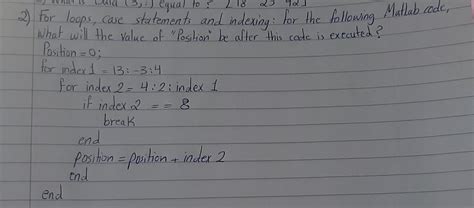 2) For loops, case statements and indexing: for the following Matlab code,
What will the value of "Position" be after this code is executed?
Position=0;
for index 1 = 13:-3:4
for index 2 = 4:2:index 1
if index 2 == 8
break
end
position = position + index 2
end
end